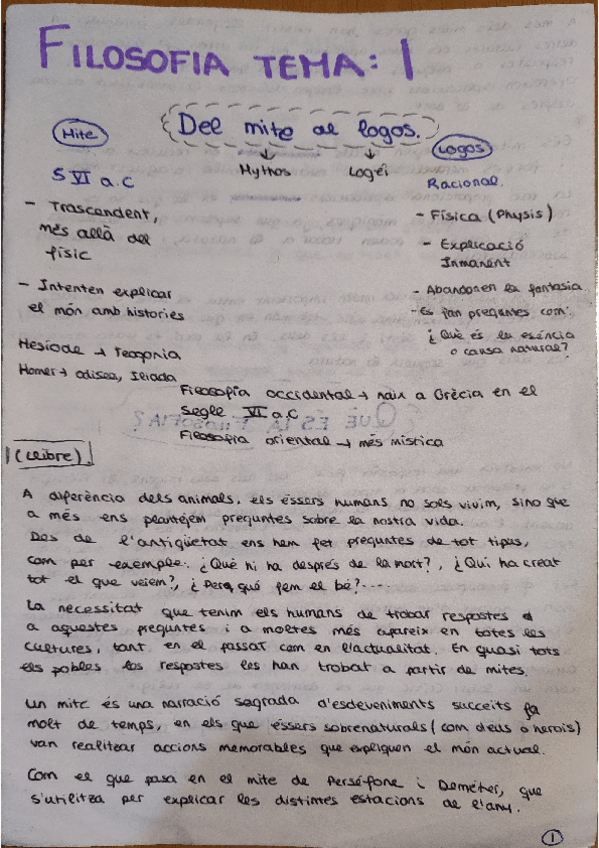 FILOSOFIA TEMA: 1
Del mite al logos.
Mite
Mythos
Logei
Logos
S VI a.C
Racional.
- Trascendent,
més allà del
físic
- Intenten explicar
el món amb histories
Hesíode → Teogonia
Homer → odisea, Iliada
- Física (Physis)
- Explicació
Inmanent
- Abandonen la fantasia
- Es fan preguntes com:
¿Què és la esència
o causa natural?
Filosofía occidental → naix a Grècia en el
segle VI a.C
Filosofia oriental → més mística
1 (Llibre).
A diferència dels animals, els éssers humans no sols vivim, sino que
a més ens plantejem preguntes sobre la nostra vida.
Des de l'antigüetat ens hem fet preguntes de tot tipus,
com per exemple: ¿Què hi ha després de la mort?, ¿Qui ha creat
tot el que veiem?, ¿Perquè fem el bé?....
La necessitat que tenim els humans de trobar respostes
a aquestes preguntes i a moltes més apareix en totes les
cultures, tant en el passat com en l'actualitat. En quasi tots
els pobles las respostes les han trobat a partir de mites.
Un mite és una narració sagrada d'esdeveniments succeits fa
molt de temps, en els que éssers sobrenaturals (com deus o herois)
van realitzar accions memorables que expliquen el món actual.
Com el que pasa en el mite de Perséfone i Deméter, que
s'utilitza per explicar les distintes estacions de l'any.
1